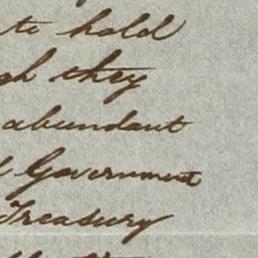 to hold
they
abundant
Government
Treasury